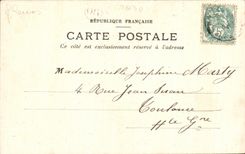 RÉPUBLIQUE FRANÇAISE
CARTE POSTALE
Ce côté est exclusivement réservé à l'adresse
Mademoiselle Joséphine Marty
4 Rue Jean Suau
Toulouse
Hte Gne